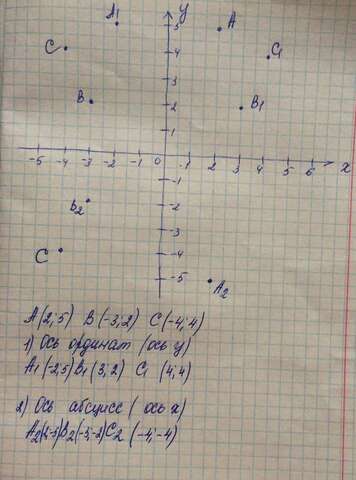 A₁ y A
5
C 4 C₁
3
B 2 B₁
1
-5 -4 -3 -2 -1 0 1 2 3 4 5 6 x
-1
b₂ -2
-3
C -4
-5 A₂
A(2;5) B(-3;2) C(-4;4)
1) Ось ординат (ось y)
A₁(-2;5) B₁(3;2) C₁ (4,4)
2) Ось абсцисс (ось x)
A₂(2;-5) B₂(-3;-2) C₂ (-4;-4)